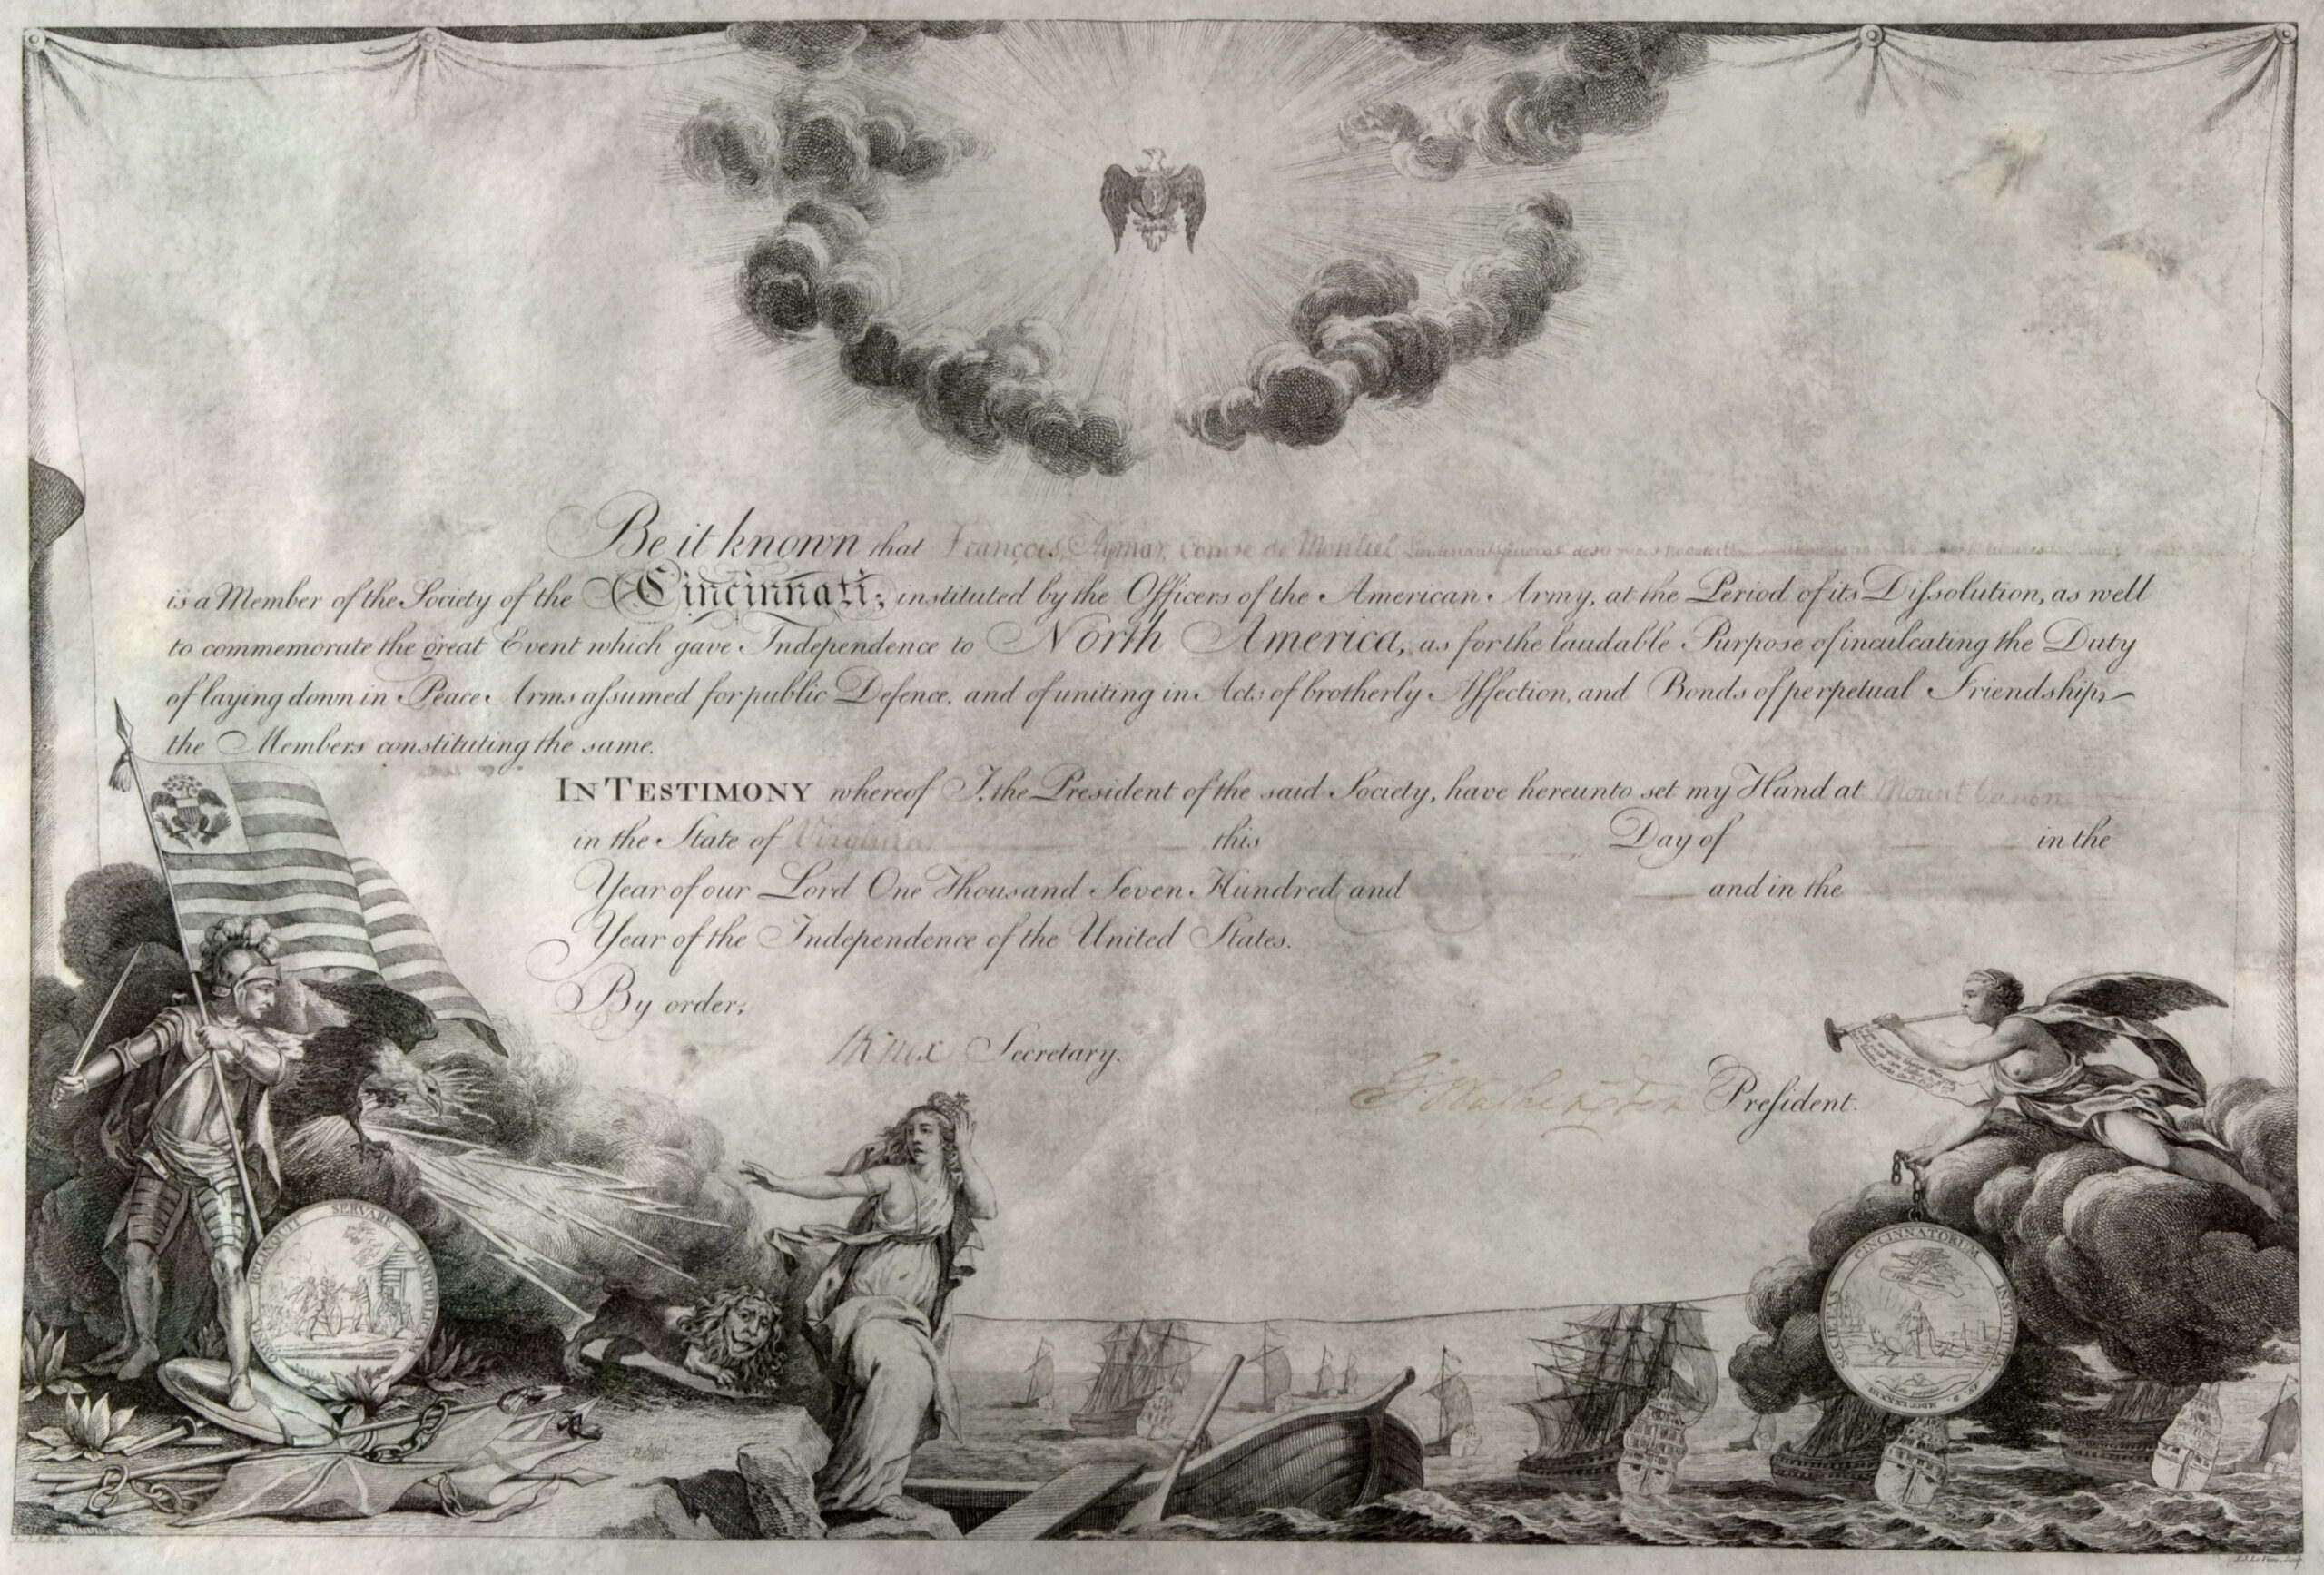 Be it known that François Aymar, Comte de Montiel Lieutenant général des
is a Member of the Society of the Cincinnati; instituted by the Officers of the American Army, at the Period of its Dissolution, as well
to commemorate the great Event which gave Independence to North America, as for the laudable Purpose of inculcating the Duty
of laying down in Peace Arms assumed for public Defence, and of uniting in Acts of brotherly Affection, and Bonds of perpetual Friendship,
the Members constituting the same.
IN TESTIMONY whereof I, the President of the said Society, have hereunto set my Hand at Mount Vernon
in the State of Virginia this Day of in the
Year of our Lord One Thousand Seven Hundred and and in the
Year of the Independence of the United States.
By order,
HKnox Secretary.
G. Washington President.
OMNIA RELINQUIT SERVARE REMPUBLICAM
SOCIETAS CINCINNATORUM INSTITUTA